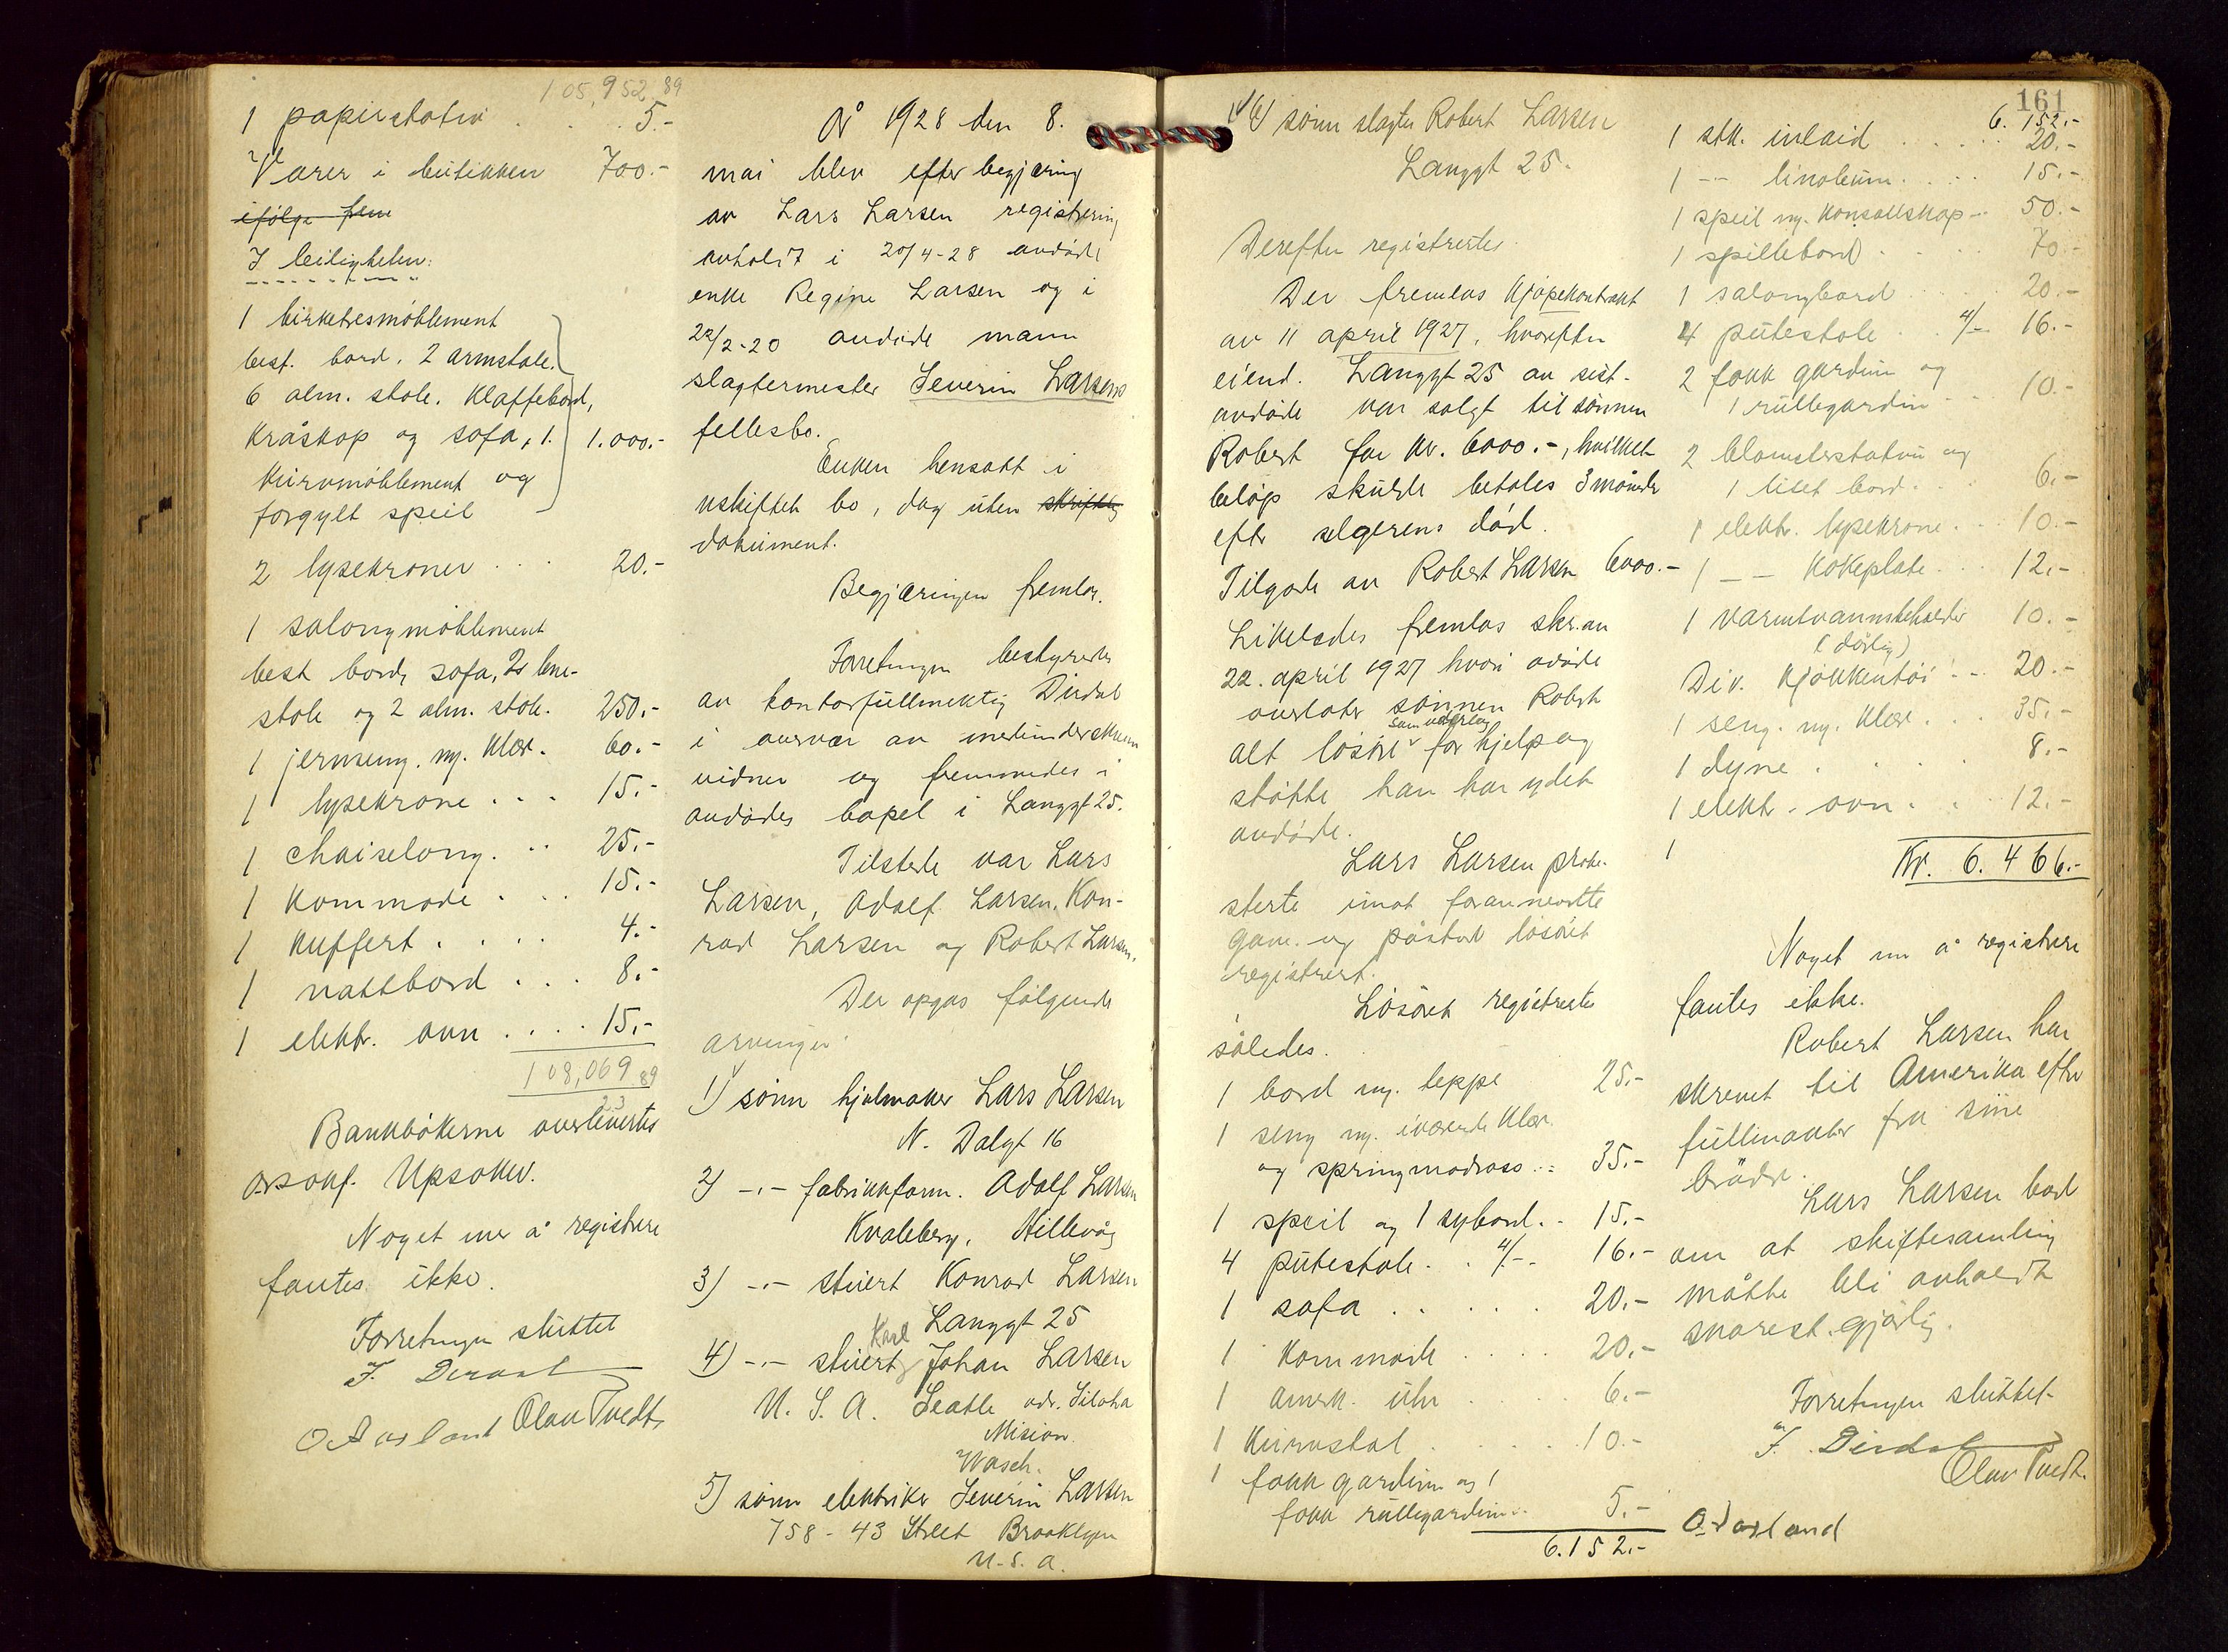 105,952,89
1 papirstativ . . . 5.-
Varer i butikken 700.-
ifølge frem
I leiligheten:
1 birketresmøblement
best. bord. 2 armstole.
6 alm. stole. Klaffebord,
Kråskap og sofa, 1. 1.000.-
Kurvmøblement og
forgylt speil
2 lysekroner . . . 20.-
1 salongmøblement
best bord, sofa, 2 lene-
stole og 2 alm. stole. 250.-
1 jernseng. m. Klær. 60.-
1 lysekrone . . . 15.-
1 chaiselong. . . 25.-
1 Kommode . . . 15.-
1 Kuffert . . . . 4.-
1 nattbord . . . 8.-
1 elektr. ovn . . . . 15.-
108,069 89
23
Bankbøkerne overlevertes
o.r.sakf. Upsaker.
Noget mer å registrere
fantes ikke.
Forretningen sluttet
F. Dirdal
O Aarland Olav Tvedt

År 1928 den 8.
mai blev efter begjæring
av Lars Larsen registrering
avholdt i 20/4-28 avdøde
enke Regine Larsen og i
22/2-20 avdøde mann
slagtermester Severin Larsens
fellesbo.
Enken hensatt i
uskiftet bo, dog uten skriftlig
dokument.
Begjæringen fremlas.
Forretningen bestyredes
av kontorfullmektig Dirdal
i overvær av medunderskrevne
vidner og fremmedes i
avdødes bopel i Langgt 25.
Tilstede var Lars
Larsen, Adolf Larsen, Kon-
rad Larsen og Robert Larsen.
Der opgas følgende
arvinger:
1) sønn hjulmaker Lars Larsen
N. Dalgt 16
2) -"- fabrikkform. Adolf Larsen
Kvaleberg, Hillevåg
3) -"- stuert Konrad Larsen
Langgt 25
Karl
4) -"- stuert Johan Larsen
U. S. A. Seatle adr. Siloha
Mision.
Wasch.
5) sønn elektriker Severin Larsen
758 - 43 Street Brooklyn
U.S.A.

6) sønn slagter Robert Larsen
Langgt 25.
Derefter registrertes.
Der fremlas Kjøpekontrakt
av 11 april 1927, hvorefter
eiend. Langgt 25 av sist-
avdøde var solgt til sønnen
Robert for kr. 6000.-, hvilket
beløp skulde betales 3 måneder
efter selgerens død.
Tilgode av Robert Larsen 6000.-
Likeledes fremlas skr. av
22. april 1927 hvori avdøde
overlater sønnen Robert
som vederlag
alt løsøre for hjelp og
støtte han har ydet
avdøde.
Lars Larsen prote-
sterte imot forannevnte
gave. og påstod løsøret
registrert.
Løsøret registrertes
således.
1 bord m. teppe 25.-
1 seng m. iværende Klær
og springmadrass . . 35.-
1 speil og 1 sybord. . 15.-
4 putestole. . . 4/- . 16.-
1 sofa . . . . . 20.-
1 Kommode . . . . 20.-
1 amrk. uhr . . . 6.-
1 Kurvstol . . . . 10.-
1 fakk gardiner og 1
fakk rullegardiner . . 5.-
6.152.-

161
6.152.-
1 stk. inlaid . . . . . 20.-
1 -"- linoleum. . . . 15.-
1 speil m. Konsollskap . . 50.-
1 spillebord . . . . 70.-
1 salongbord . . . 20.-
4 putestole . . . 4/- 16.-
2 fakk gardiner og
1 rullegardin . . . 10.-
2 blomsterstativ og
1 litet bord . . . 6.-
1 elektr. lysekrone. . . 10.-
1 -"- Kokeplate . . . 12.-
1 varmtvannsbeholder 10.-
(dårlig)
Div. Kjøkkentøi . . . 20.-
1 seng. m. Klær . . . 35.-
1 dyne . . . . . 8.-
1 elektr. ovn . . . 12.-
1
Kr. 6.466.-
Noget mer å registrere
fantes ikke.
Robert Larsen har
skrevet til Amerika efter
fullmakter fra sine
brødre.
Lars Larsen bad
om at skiftesamling
måtte bli avholdt
snarest gjørlig.
Forretningen sluttet.
F. Dirdal
Olav Tvedt.
O. Aarland